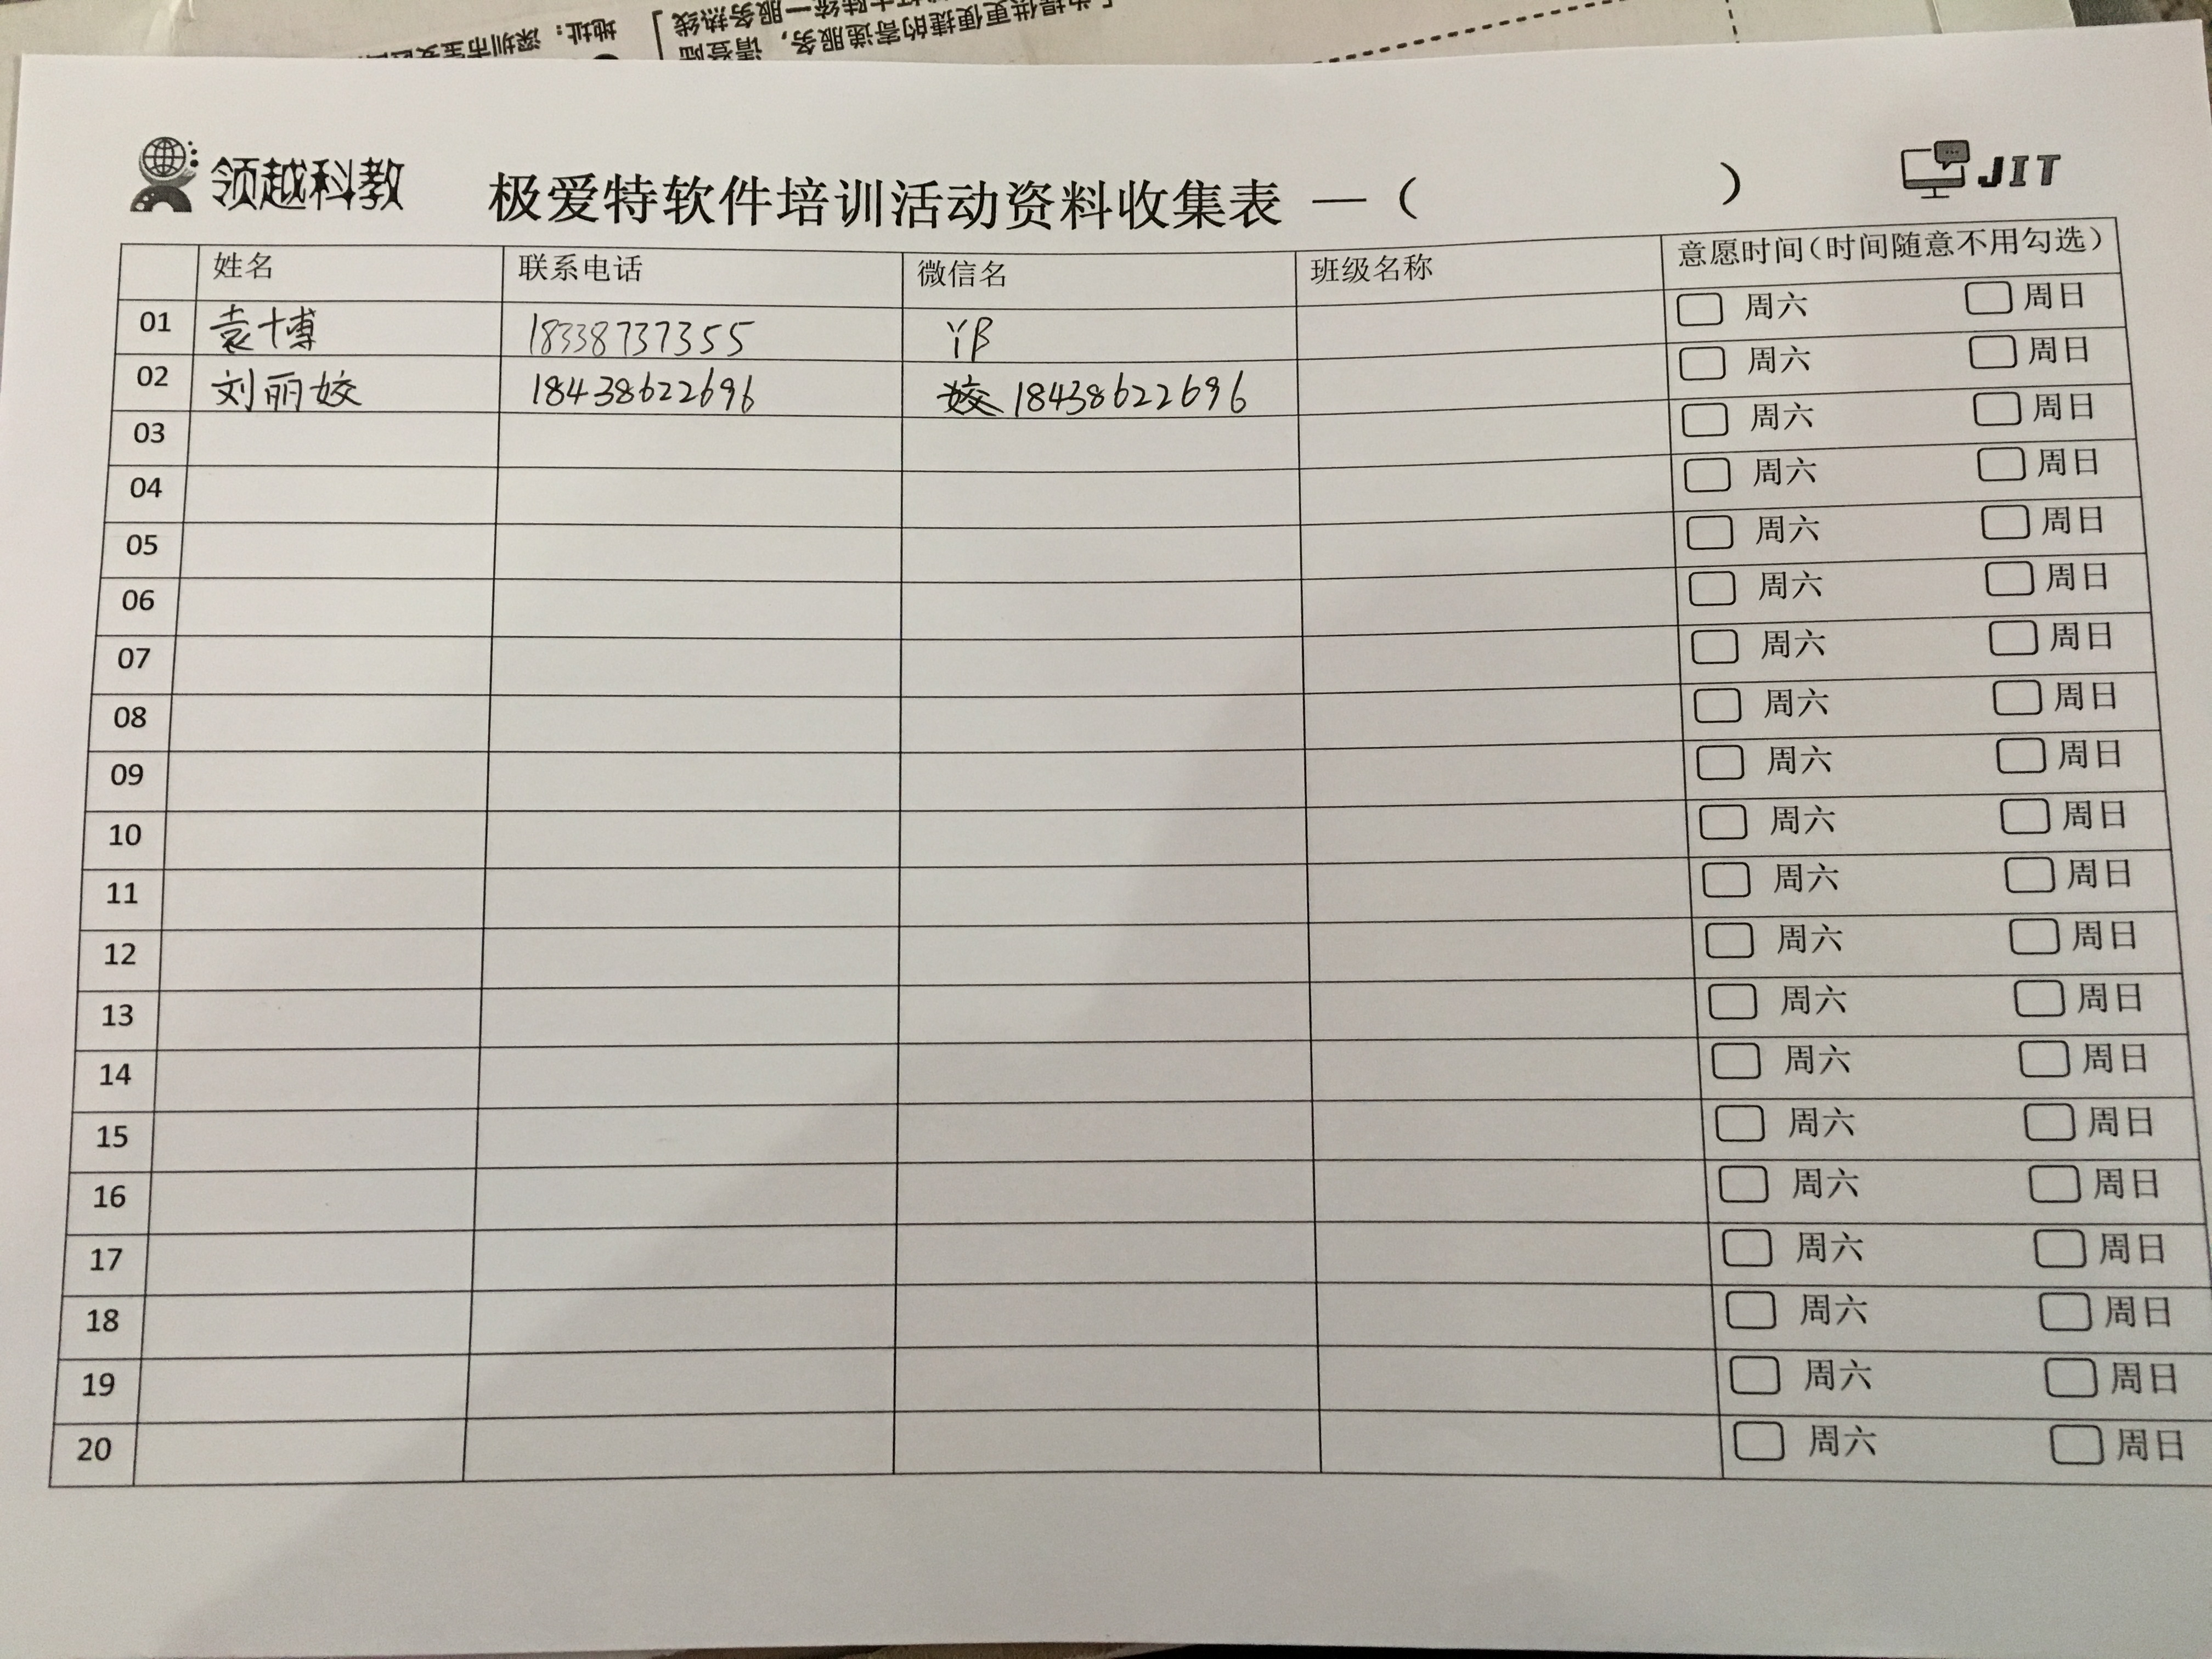 领越科教 极爱特软件培训活动资料收集表 —（ ） JIT
姓名 联系电话 微信名 班级名称 意愿时间(时间随意不用勾选)
01 袁博 18338737355 YB 周六 周日
02 刘丽姣 18438622696 姣 18438622696 周六 周日
03 周六 周日
04 周六 周日
05 周六 周日
06 周六 周日
07 周六 周日
08 周六 周日
09 周六 周日
10 周六 周日
11 周六 周日
12 周六 周日
13 周六 周日
14 周六 周日
15 周六 周日
16 周六 周日
17 周六 周日
18 周六 周日
19 周六 周日
20 周六 周日
地址：深圳市宝安
提供更便捷的寄递服务，请登陆
统一服务热线